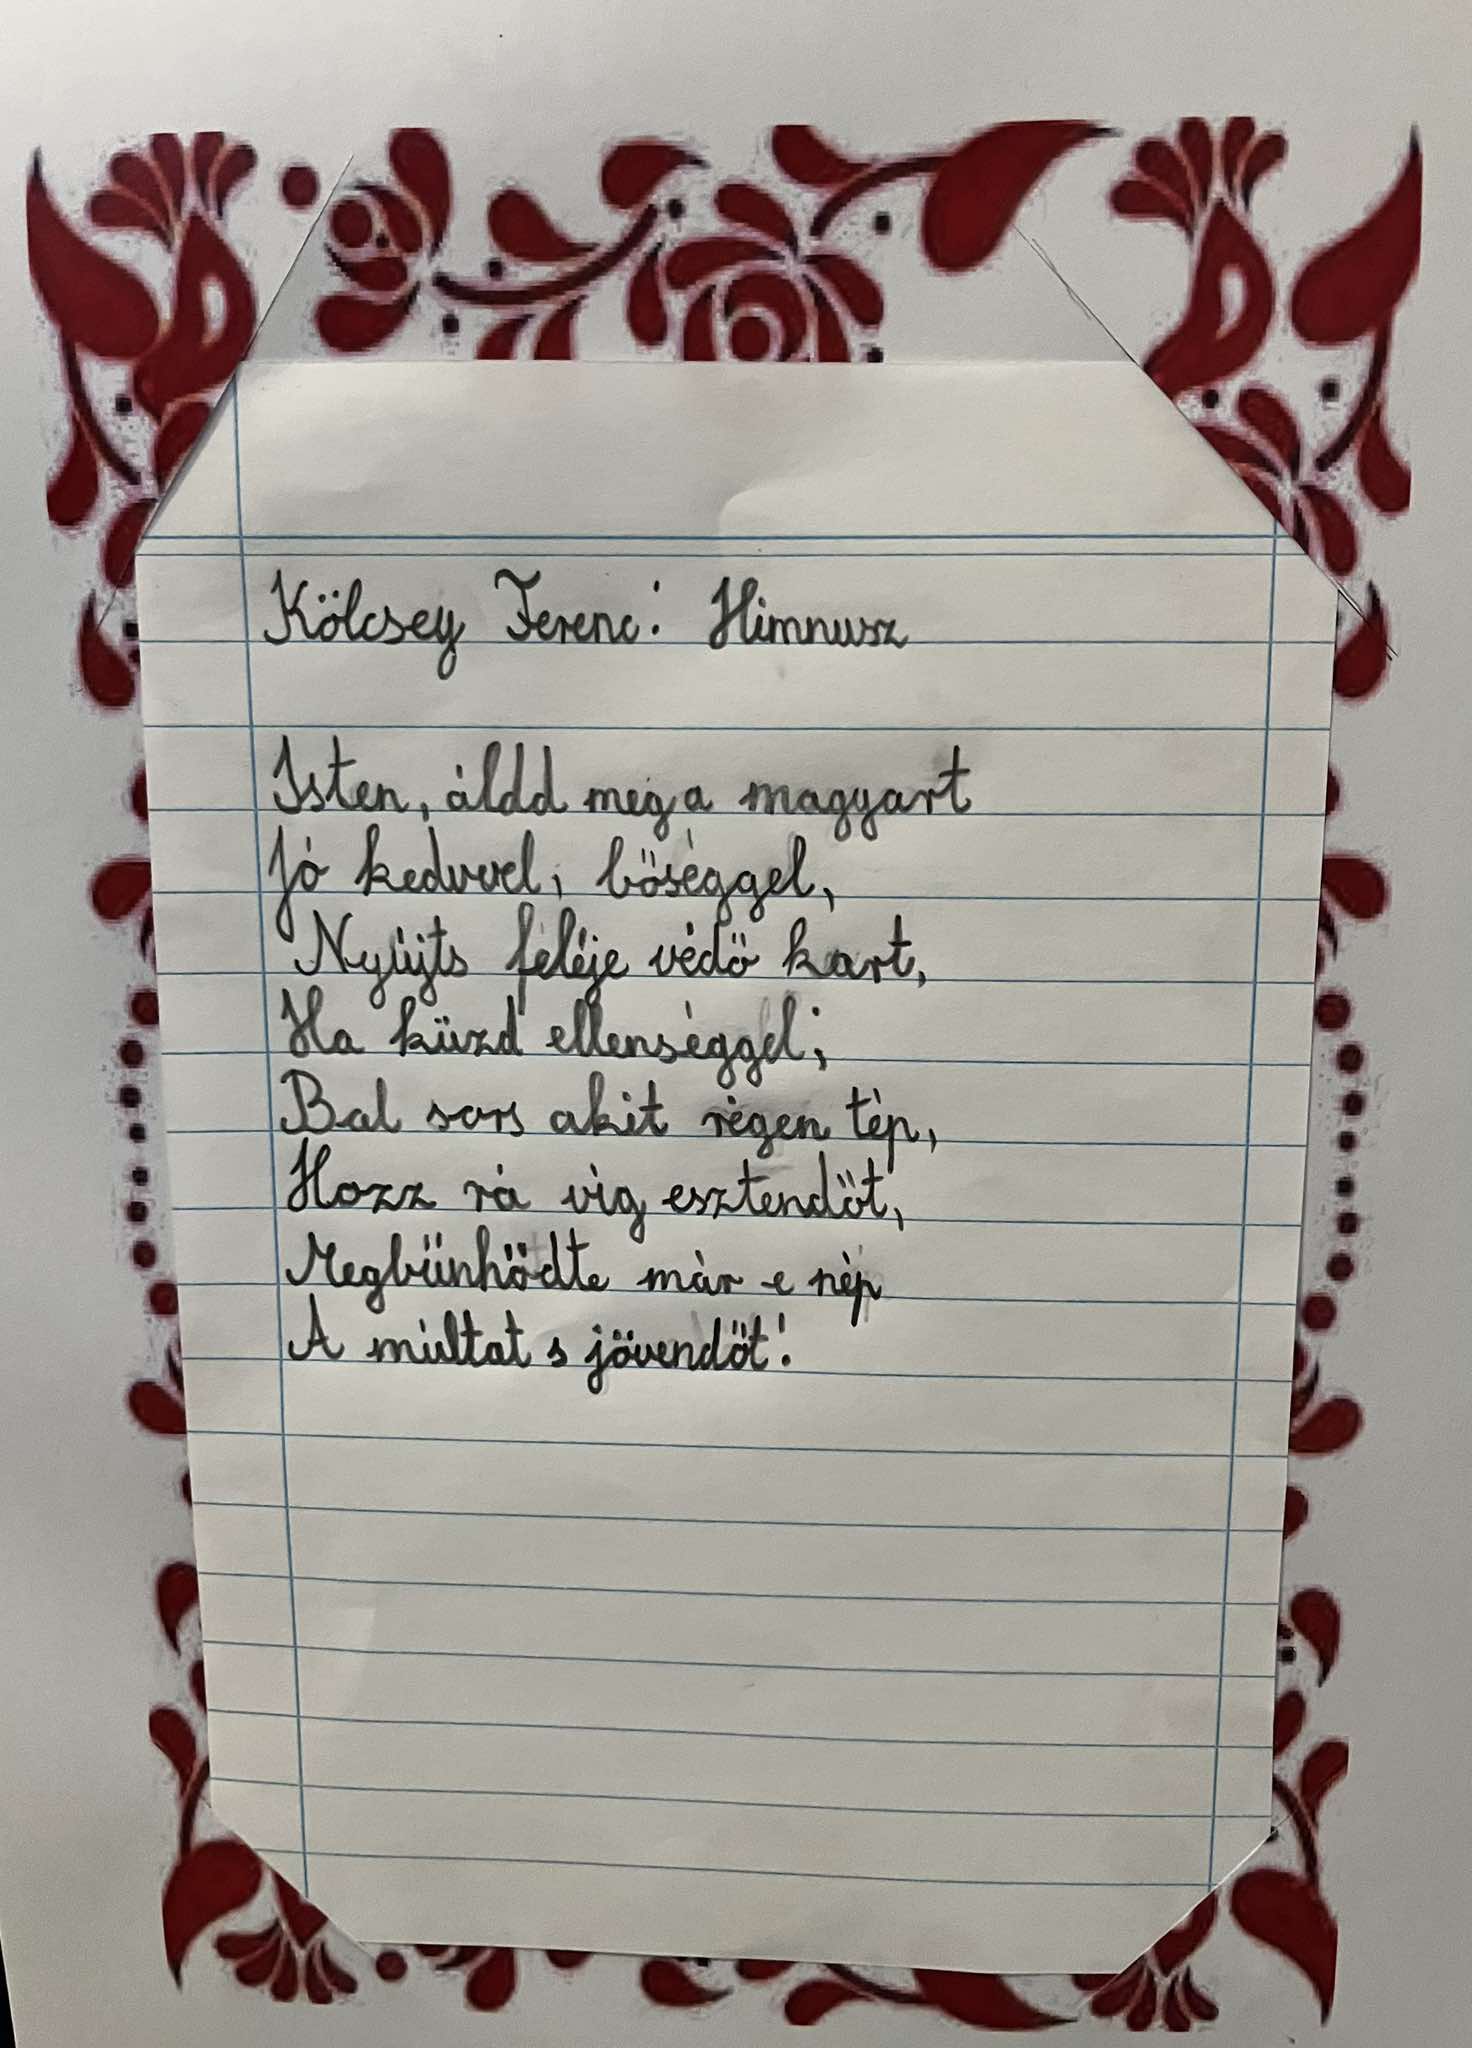 Kölcsey Ferenc: Himnusz
Isten, áldd meg a magyart
Jó kedvvel, bőséggel,
Nyújts feléje védő kart,
Ha küzd ellenséggel;
Bal sors akit régen tép,
Hozz rá víg esztendőt,
Megbűnhődte már e nép
A múltat s jövendőt!